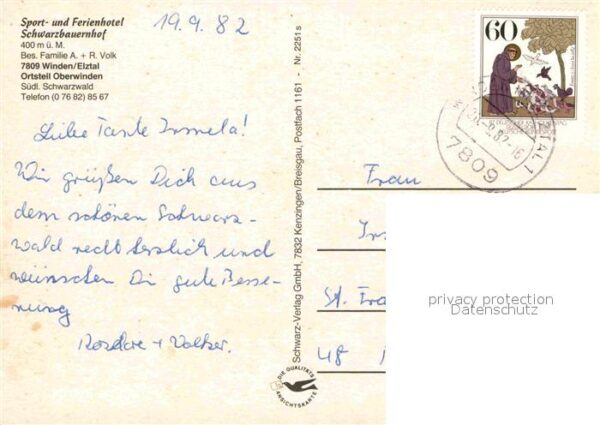 Sport- und Ferienhotel
Schwarzbauernhof
400 m ü. M.
Bes. Familie A. + R. Volk
7809 Winden/Elztal
Ortsteil Oberwinden
Südl. Schwarzwald
Telefon (0 76 82) 85 67
19.9.82
Liebe Tante Irmela!
Wir grüßen Dich aus
dem schönen Schwarz-
wald recht herzlich und
wünschen Dir gute Besse-
rung
+ Volker.
Schwarz-Verlag GmbH, 7832 Kenzingen/Breisgau, Postfach 1161 - Nr. 2251s
DIE QUALITÄTS
ANSICHTSKARTE
60
7809
Frau
St. Fra
48
privacy protection
Datenschutz